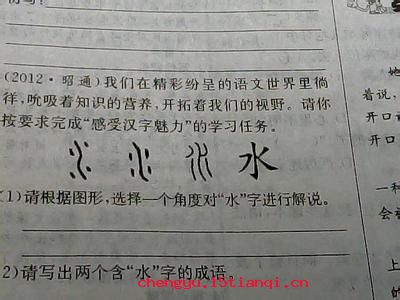 (2012·昭通)我们在精彩纷呈的语文世界里徜
徉,吮吸着知识的营养,开拓着我们的视野。请你
按要求完成“感受汉字魅力”的学习任务。
水
(1)请根据图形,选择一个角度对“水”字进行解说。
2)请写出两个含“水”字的成语。
着说,
开口
开口
一种
会被
的
chengyu.15tianqi.cn